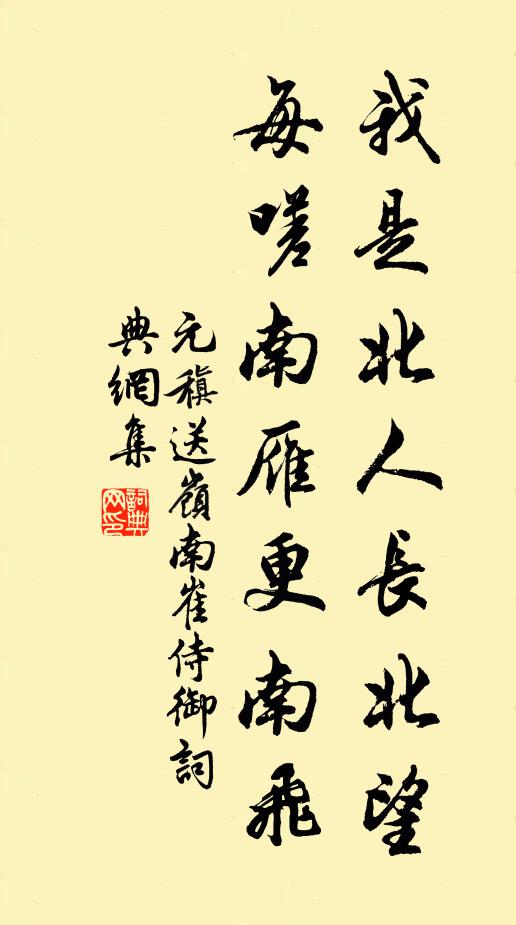 我是北人長北望
每嗟南雁更南飛
元稹送嶺南崔侍御詞
典網集
詞典網印